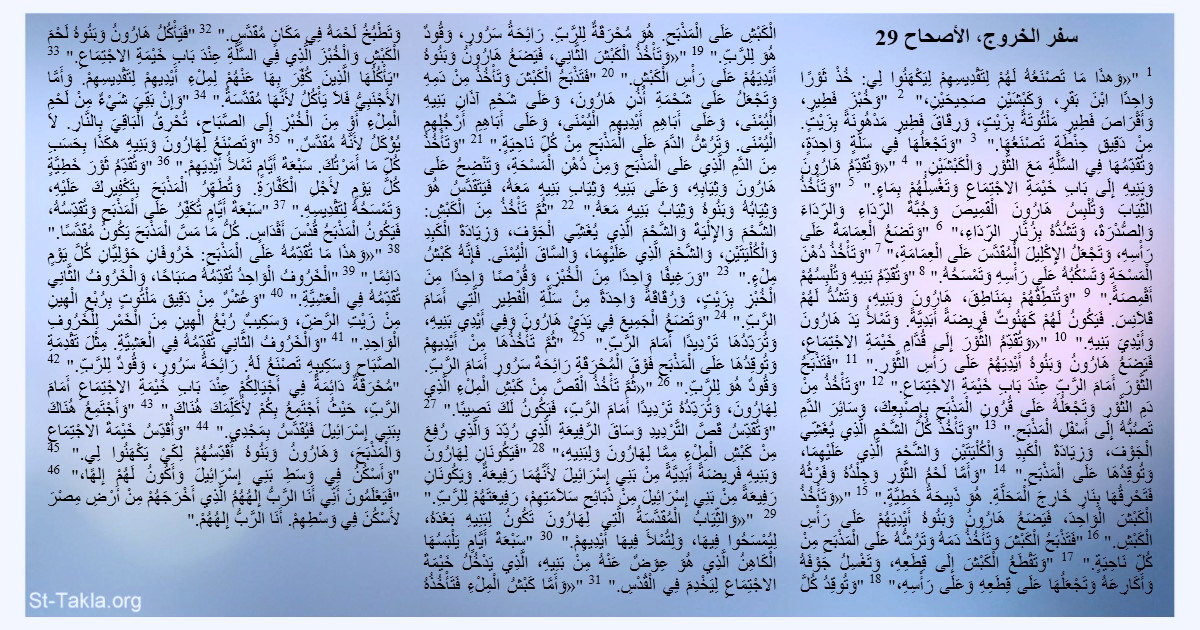 سفر الخروج، الأصحاح 29
1 "«وَهذَا مَا تَصْنَعُهُ لَهُمْ لِتَقْدِيسِهِمْ لِيَكْهَنُوا لِي: خُذْ ثَوْرًا
وَاحِدًا ابْنَ بَقَرٍ، وَكَبْشَيْنِ صَحِيحَيْنِ،" 2 "وَخُبْزَ فَطِيرٍ،
وَأَقْرَاصَ فَطِيرٍ مَلْتُوتَةً بِزَيْتٍ، وَرِقَاقَ فَطِيرٍ مَدْهُونَةً بِزَيْتٍ.
مِنْ دَقِيقِ حِنْطَةٍ تَصْنَعُهَا." 3 "وَتَجْعَلُهَا فِي سَلَّةٍ وَاحِدَةٍ،
وَتُقَدِّمُهَا فِي السَّلَّةِ مَعَ الثَّوْرِ وَالْكَبْشَيْنِ." 4 "«وَتُقَدِّمُ هَارُونَ
وَبَنِيهِ إِلَى بَابِ خَيْمَةِ الاجْتِمَاعِ وَتَغْسِلُهُمْ بِمَاءٍ." 5 "وَتَأْخُذُ
الثِّيَابَ وَتُلْبِسُ هَارُونَ الْقَمِيصَ وَجُبَّةَ الرِّدَاءِ وَالرِّدَاءَ
وَالصُّدْرَةَ، وَتَشُدُّهُ بِزُنَّارِ الرِّدَاءِ،" 6 "وَتَضَعُ الْعِمَامَةَ عَلَى
رَأْسِهِ، وَتَجْعَلُ الإِكْلِيلَ الْمُقَدَّسَ عَلَى الْعِمَامَةِ،" 7 "وَتَأْخُذُ دُهْنَ
الْمَسْحَةِ وَتَسْكُبُهُ عَلَى رَأْسِهِ وَتَمْسَحُهُ." 8 "وَتُقَدِّمُ بَنِيهِ وَتُلْبِسُهُمْ
أَقْمِصَةً." 9 "وَتُنَطِّقُهُمْ بِمَنَاطِقَ، هَارُونَ وَبَنِيهِ، وَتَشُدُّ لَهُمْ
قَلاَنِسَ. فَيَكُونُ لَهُمْ كَهَنُوتٌ فَرِيضَةً أَبَدِيَّةً. وَتَمْلأُ يَدَ هَارُونَ
وَأَيْدِيَ بَنِيهِ." 10 "«وَتُقَدِّمُ الثَّوْرَ إِلَى قُدَّامِ خَيْمَةِ الاجْتِمَاعِ،
فَيَضَعُ هَارُونُ وَبَنُوهُ أَيْدِيَهُمْ عَلَى رَأْسِ الثَّوْرِ." 11 "فَتَذْبَحُ
الثَّوْرَ أَمَامَ الرَّبِّ عِنْدَ بَابِ خَيْمَةِ الاجْتِمَاعِ." 12 "وَتَأْخُذُ مِنْ
دَمِ الثَّوْرِ وَتَجْعَلُهُ عَلَى قُرُونِ الْمَذْبَحِ بِإِصْبِعِكَ، وَسَائِرَ الدَّمِ
تَصُبُّهُ إِلَى أَسْفَلِ الْمَذْبَحِ." 13 "وَتَأْخُذُ كُلَّ الشَّحْمِ الَّذِي يُغَشِّي
الْجَوْفَ، وَزِيَادَةَ الْكَبِدِ وَالْكُلْيَتَيْنِ، وَالشَّحْمَ الَّذِي عَلَيْهِمَا،
وَتُوقِدُهَا عَلَى الْمَذْبَحِ." 14 "وَأَمَّا لَحْمُ الثَّوْرِ وَجِلْدُهُ وَفَرْثُهُ
فَتَحْرِقُهَا بِنَارٍ خَارِجَ الْمَحَلَّةِ. هُوَ ذَبِيحَةُ خَطِيَّةٍ." 15 "«وَتَأْخُذُ
الْكَبْشَ الْوَاحِدَ، فَيَضَعُ هَارُونُ وَبَنُوهُ أَيْدِيَهُمْ عَلَى رَأْسِ
الْكَبْشِ." 16 "فَتَذْبَحُ الْكَبْشَ وَتَأْخُذُ دَمَهُ وَتَرُشُّهُ عَلَى الْمَذْبَحِ مِنْ
كُلِّ نَاحِيَةٍ." 17 "وَتَقْطَعُ الْكَبْشَ إِلَى قِطَعِهِ، وَتَغْسِلُ جَوْفَهُ
وَأَكَارِعَهُ وَتَجْعَلُهَا عَلَى قِطَعِهِ وَعَلَى رَأْسِهِ،" 18 "وَتُوقِدُ كُلَّ
الْكَبْشِ عَلَى الْمَذْبَحِ. هُوَ مُحْرَقَةٌ لِلرَّبِّ. رَائِحَةُ سَرُورٍ، وَقُودٌ
هُوَ لِلرَّبِّ." 19 "«وَتَأْخُذُ الْكَبْشَ الثَّانِي، فَيَضَعُ هَارُونُ وَبَنُوهُ
أَيْدِيَهُمْ عَلَى رَأْسِ الْكَبْشِ." 20 "فَتَذْبَحُ الْكَبْشَ وَتَأْخُذُ مِنْ دَمِهِ
وَتَجْعَلُ عَلَى شَحْمَةِ أُذُنِ هَارُونَ، وَعَلَى شَحْمِ آذَانِ بَنِيهِ
الْيُمْنَى، وَعَلَى أَبَاهِمِ أَيْدِيهِمِ الْيُمْنَى، وَعَلَى أَبَاهِمِ أَرْجُلِهِمِ
الْيُمْنَى. وَتَرُشُّ الدَّمَ عَلَى الْمَذْبَحِ مِنْ كُلِّ نَاحِيَةٍ." 21 "وَتَأْخُذُ
مِنَ الدَّمِ الَّذِي عَلَى الْمَذْبَحِ وَمِنْ دُهْنِ الْمَسْحَةِ، وَتَنْضِحُ عَلَى
هَارُونَ وَثِيَابِهِ، وَعَلَى بَنِيهِ وَثِيَابِ بَنِيهِ مَعَهُ، فَيَتَقَدَّسُ هُوَ
وَثِيَابُهُ وَبَنُوهُ وَثِيَابُ بَنِيهِ مَعَهُ." 22 "ثُمَّ تَأْخُذُ مِنَ الْكَبْشِ:
الشَّحْمَ وَالإِلْيَةَ وَالشَّحْمَ الَّذِي يُغَشِّي الْجَوْفَ، وَزِيَادَةَ الْكَبِدِ
وَالْكُلْيَتَيْنِ، وَالشَّحْمَ الَّذِي عَلَيْهِمَا، وَالسَّاقَ الْيُمْنَى. فَإِنَّهُ كَبْشُ
مِلْءٍ." 23 "وَرَغِيفًا وَاحِدًا مِنَ الْخُبْزِ، وَقُرْصًا وَاحِدًا مِنَ
الْخُبْزِ بِزَيْتٍ، وَرُقَاقَةً وَاحِدَةً مِنْ سَلَّةِ الْفَطِيرِ الَّتِي أَمَامَ
الرَّبِّ." 24 "وَتَضَعُ الْجَمِيعَ فِي يَدَيْ هَارُونَ وَفِي أَيْدِي بَنِيهِ،
وَتُرَدِّدُهَا تَرْدِيدًا أَمَامَ الرَّبِّ." 25 "ثُمَّ تَأْخُذُهَا مِنْ أَيْدِيهِمْ
وَتُوقِدُهَا عَلَى الْمَذْبَحِ فَوْقَ الْمُحْرَقَةِ رَائِحَةَ سَرُورٍ أَمَامَ الرَّبِّ.
وَقُودٌ هُوَ لِلرَّبِّ." 26 "«ثُمَّ تَأْخُذُ الْقَصَّ مِنْ كَبْشِ الْمِلْءِ الَّذِي
لِهَارُونَ، وَتُرَدِّدُهُ تَرْدِيدًا أَمَامَ الرَّبِّ، فَيَكُونُ لَكَ نَصِيبًا." 27
"وَتُقَدِّسُ قَصَّ التَّرْدِيدِ وَسَاقَ الرَّفِيعَةِ الَّذِي رُدِّدَ وَالَّذِي رُفِعَ
مِنْ كَبْشِ الْمِلْءِ مِمَّا لِهَارُونَ وَلِبَنِيهِ،" 28 "فَيَكُونَانِ لِهَارُونَ
وَبَنِيهِ فَرِيضَةً أَبَدِيَّةً مِنْ بَنِي إِسْرَائِيلَ لأَنَّهُمَا رَفِيعَةٌ. وَيَكُونَانِ
رَفِيعَةً مِنْ بَنِي إِسْرَائِيلَ مِنْ ذَبَائِحِ سَلاَمَتِهِمْ، رَفِيعَتَهُمْ لِلرَّبِّ."
29 "«وَالثِّيَابُ الْمُقَدَّسَةُ الَّتِي لِهَارُونَ تَكُونُ لِبَنِيهِ بَعْدَهُ،
لِيُمْسَحُوا فِيهَا، وَلِتُمْلأَ فِيهَا أَيْدِيهِمْ." 30 "سَبْعَةَ أَيَّامٍ يَلْبَسُهَا
الْكَاهِنُ الَّذِي هُوَ عِوَضٌ عَنْهُ مِنْ بَنِيهِ، الَّذِي يَدْخُلُ خَيْمَةَ
الاجْتِمَاعِ لِيَخْدِمَ فِي الْقُدْسِ." 31 "«وَأَمَّا كَبْشُ الْمِلْءِ فَتَأْخُذُهُ
وَتَطْبُخُ لَحْمَهُ فِي مَكَانٍ مُقَدَّسٍ." 32 "فَيَأْكُلُ هَارُونُ وَبَنُوهُ لَحْمَ
الْكَبْشِ وَالْخُبْزَ الَّذِي فِي السَّلَّةِ عِنْدَ بَابِ خَيْمَةِ الاجْتِمَاعِ." 33
"يَأْكُلُهَا الَّذِينَ كُفِّرَ بِهَا عَنْهُمْ لِمَلْءِ أَيْدِيهِمْ لِتَقْدِيسِهِمْ. وَأَمَّا
الأَجْنَبِيُّ فَلاَ يَأْكُلُ لأَنَّهَا مُقَدَّسَةٌ." 34 "وَإِنْ بَقِيَ شَيْءٌ مِنْ لَحْمِ
الْمِلْءِ أَوْ مِنَ الْخُبْزِ إِلَى الصَّبَاحِ، تُحْرِقُ الْبَاقِيَ بِالنَّارِ. لاَ
يُؤْكَلُ لأَنَّهُ مُقَدَّسٌ." 35 "وَتَصْنَعُ لِهَارُونَ وَبَنِيهِ هكَذَا بِحَسَبِ
كُلِّ مَا أَمَرْتُكَ. سَبْعَةَ أَيَّامٍ تَمْلأُ أَيْدِيَهُمْ." 36 "وَتُقَدِّمُ ثَوْرَ خَطِيَّةٍ
كُلَّ يَوْمٍ لأَجْلِ الْكَفَّارَةِ. وَتُطَهِّرُ الْمَذْبَحَ بِتَكْفِيرِكَ عَلَيْهِ،
وَتَمْسَحُهُ لِتَقْدِيسِهِ." 37 "سَبْعَةَ أَيَّامٍ تُكَفِّرُ عَلَى الْمَذْبَحِ وَتُقَدِّسُهُ،
فَيَكُونُ الْمَذْبَحُ قُدْسَ أَقْدَاسٍ. كُلُّ مَا مَسَّ الْمَذْبَحَ يَكُونُ مُقَدَّسًا."
38 "«وَهذَا مَا تُقَدِّمُهُ عَلَى الْمَذْبَحِ: خَرُوفَانِ حَوْلِيَّانِ كُلَّ يَوْمٍ
دَائِمًا." 39 "الْخَرُوفُ الْوَاحِدُ تُقَدِّمُهُ صَبَاحًا، وَالْخَرُوفُ الثَّانِي
تُقَدِّمُهُ فِي الْعَشِيَّةِ." 40 "وَعُشْرٌ مِنْ دَقِيق مَلْتُوتٍ بِرُبْعِ الْهِينِ
مِنْ زَيْتِ الرَّضِّ، وَسَكِيبٌ رُبْعُ الْهِينِ مِنَ الْخَمْرِ لِلْخَرُوفِ
الْوَاحِدِ." 41 "وَالْخَرُوفُ الثَّانِي تُقَدِّمُهُ فِي الْعَشِيَّةِ. مِثْلَ تَقْدِمَةِ
الصَّبَاحِ وَسَكِيبِهِ تَصْنَعُ لَهُ. رَائِحَةُ سَرُورٍ، وَقُودٌ لِلرَّبِّ." 42
"مُحْرَقَةٌ دَائِمَةٌ فِي أَجْيَالِكُمْ عِنْدَ بَابِ خَيْمَةِ الاجْتِمَاعِ أَمَامَ
الرَّبِّ، حَيْثُ أَجْتَمِعُ بِكُمْ لأُكَلِّمَكَ هُنَاكَ." 43 "وَأَجْتَمِعُ هُنَاكَ
بِبَنِي إِسْرَائِيلَ فَيُقَدَّسُ بِمَجْدِي." 44 "وَأُقَدِّسُ خَيْمَةَ الاجْتِمَاعِ
وَالْمَذْبَحَ، وَهَارُونُ وَبَنُوهُ أُقَدِّسُهُمْ لِكَيْ يَكْهَنُوا لِي." 45
"وَأَسْكُنُ فِي وَسَطِ بَنِي إِسْرَائِيلَ وَأَكُونُ لَهُمْ إِلهًا،" 46
"فَيَعْلَمُونَ أَنِّي أَنَا الرَّبُّ إِلهُهُمُ الَّذِي أَخْرَجَهُمْ مِنْ أَرْضِ مِصْرَ
لأَسْكُنَ فِي وَسْطِهِمْ. أَنَا الرَّبُّ إِلهُهُمْ."
St-Takla.org